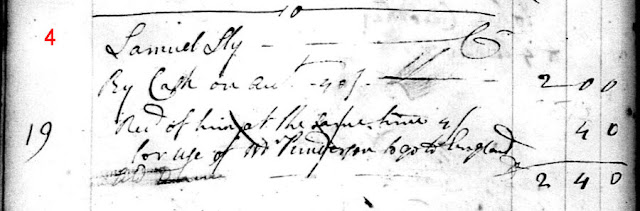 10
4
Samuel Sly - - - Cr
By Cash on acct - 40/ - 2 0 0
19 Recd of him at the same time 4/ 4 0
for use of Mr Punderson to go to England
2 4 0